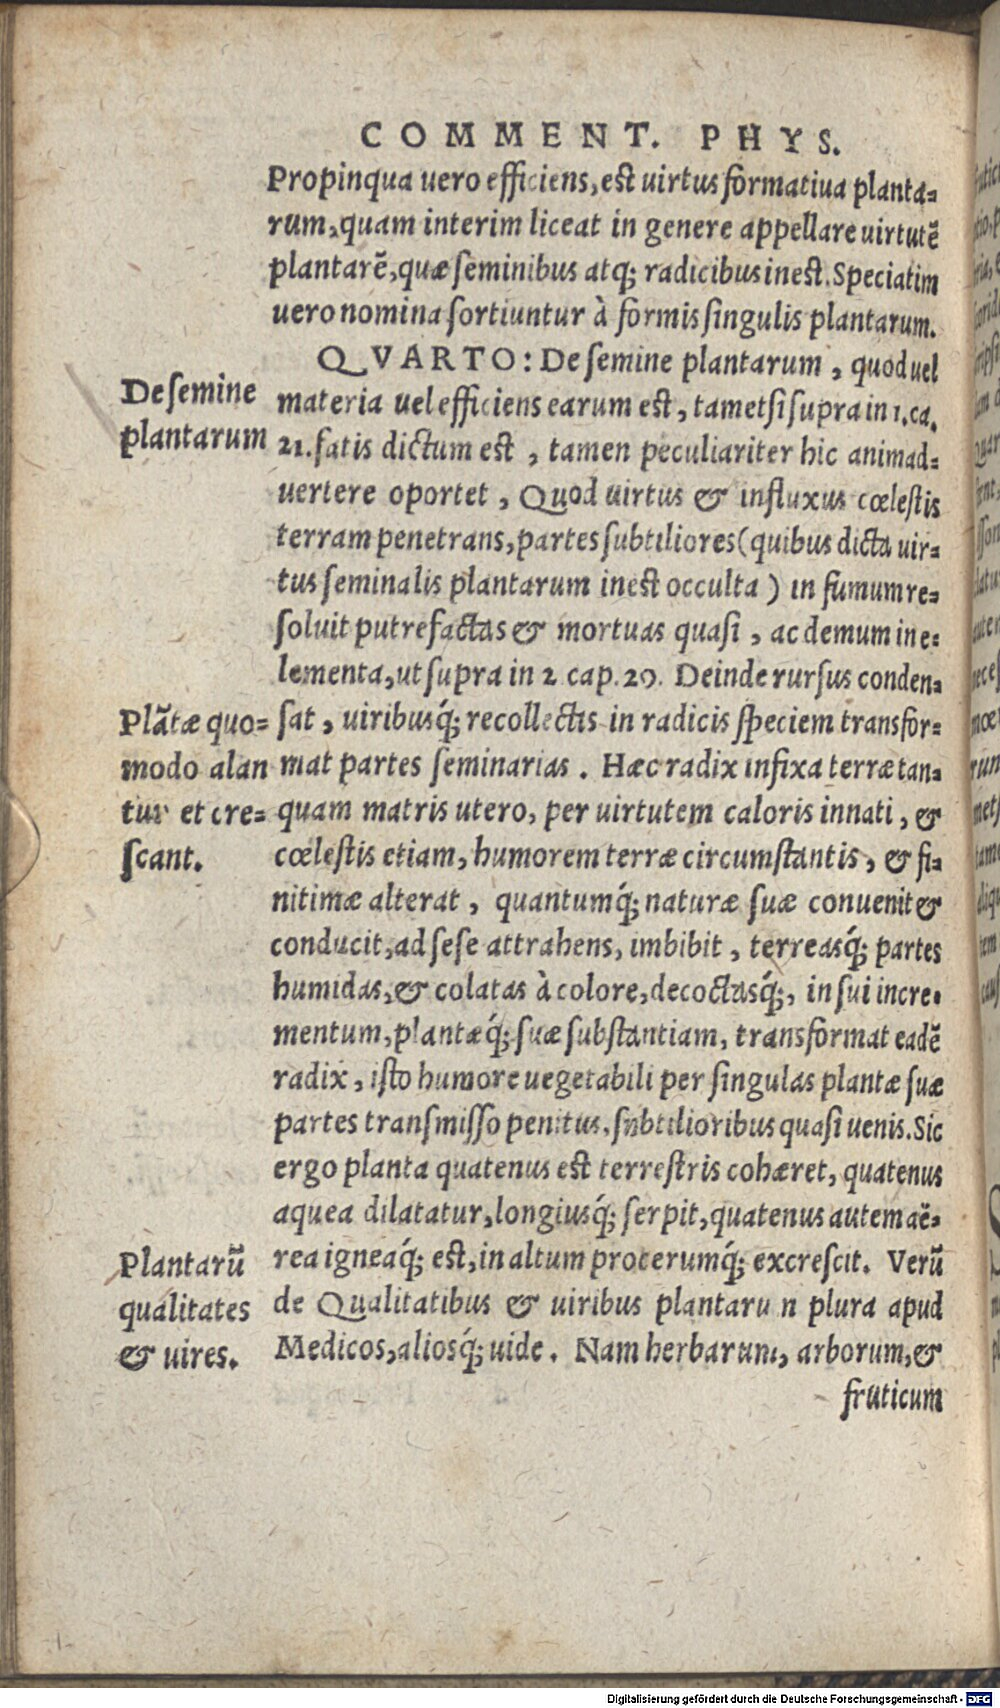 COMMENT. PHYS.
Propinqua uero efficiens, est uirtus formatiua planta-
rum, quam interim liceat in genere appellare uirtutẽ
plantarẽ, quæ seminibus atq; radicibus inest. Speciatim
uero nomina sortiuntur à formis singulis plantarum.
QVARTO: De semine plantarum, quod uel
De semine
plantarum
materia uel efficiens earum est, tametsi supra in 1. ca.
21. satis dictum est, tamen peculiariter hic animad-
uertere oportet, Quod uirtus & influxus cœlestis
terram penetrans, partes subtiliores (quibus dicta uir-
tus seminalis plantarum inest occulta) in fumum re-
soluit putrefactas & mortuas quasi, ac demum in e-
lementa, ut supra in 2 cap. 29. Deinde rursus conden-
Plãtæ quo-
modo alan
tur et cre-
scant.
sat, uiribusq́; recollectis in radicis speciem transfor-
mat partes seminarias. Hæc radix infixa terræ tan-
quam matris utero, per uirtutem caloris innati, &
cœlestis etiam, humorem terræ circumstantis, & fi-
nitimæ alterat, quantumq́; naturæ suæ conuenit &
conducit, ad sese attrahens, imbibit, terreasq́; partes
humidas, & colatas à colore, decoctasq́;, in sui incre-
mentum, plantæq́; suæ substantiam, transformat eadẽ
radix, isto humore uegetabili per singulas plantæ suæ
partes transmisso penitus, subtilioribus quasi uenis. Sic
ergo planta quatenus est terrestris cohæret, quatenus
aquea dilatatur, longiusq́; serpit, quatenus autem aë-
rea igneaq́; est, in altum procerumq́; excrescit. Verũ
Plantarũ
qualitates
& uires.
de Qualitatibus & uiribus plantarum plura apud
Medicos, aliosq́; uide. Nam herbarum, arborum, &
fruticum
Digitalisierung gefördert durch die Deutsche Forschungsgemeinschaft - DFG